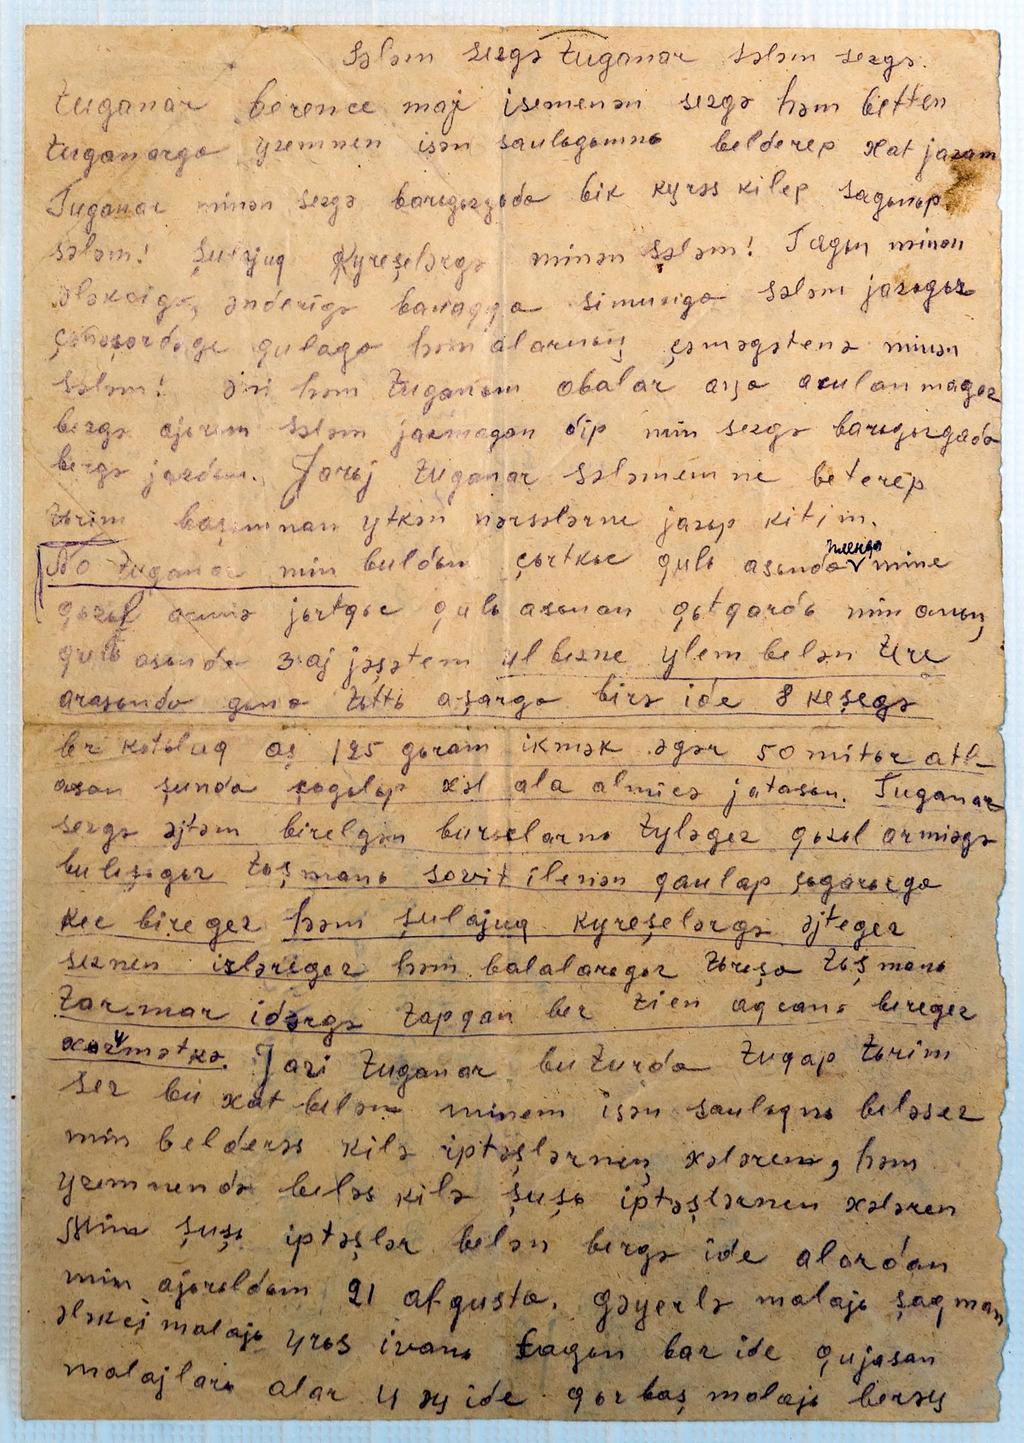 Sələm sezgə tuganar sələm sezgə.
tuganar berence maj isemenən sezgə həm bətten
tuganarga yzemnen isən saulogomnь belderep xat jazam
Tuganar minən sezgə barьgьzgada bik kyrəs kilep sagьnьp
sələm! şulajuq kyreşelərgə minən sələm! Tagьn minən
ələkcigə, ənderigə simunga sələm jazьgьz
qulaga həm alarnьŋ çəməgətenə minən
sələm! əni həm tuganьm abalar aŋa aculanmagьz
bezgə ajьrьm sələm jazmagan dip min sezgə barьgьzgada
bergə jazdьm. Jarьj tuganar sələmemne beterep
torim başьmnan ytkən nərsələrne jazьp kitim.
No tuganar min buldьm çərtkəc qulь asьnda пленда mine
qьzьl armiə jərtqьc qulь asьnan qotqardь min anьŋ
qulь asьnda 3 aj jəşətem ul bezne ylem belən tere
arasьnda gьna tottь aşarga birə ide 8 keşegə
ber kotoluq aş 125 goram ikmək əgər 50 mitьr atl-
asaŋ şunda jogьlьp xəl ala almicə jatasьŋ. Tuganar
sezgə əjtəm birelgən burьclarnь tyləgez qьzьl armiəgə
bulьşьgьz toşmanь sovit ilenən qaulap çьgarьrga
kəc biregez həm şulajuq kyreşelərgə əjtegez
seznen eslərigez həm balalarьgьz torьşa toşmanь
tar-mar idərgə tapqan ber tien aqcanь beregez
xəzmətkə. Jari tuganar buturda tuqap torim
sez bu xat belən minem isən saulьqnь beləsez
min belderəs kilə iptəşlərneŋ xələren, həm
yzemnendə beləs kilə şuşь iptəşlərnen xələren
Min şuşь iptəşlər belən bergə ide alardan
min ajьrьldьm 21 afgusta. gəyerlə malajь şaqman
ələkci malajь yrəs ivanь tagьn bar ide qujasan
malajlarь alar 4 əy ide qorbaş malajь berəy